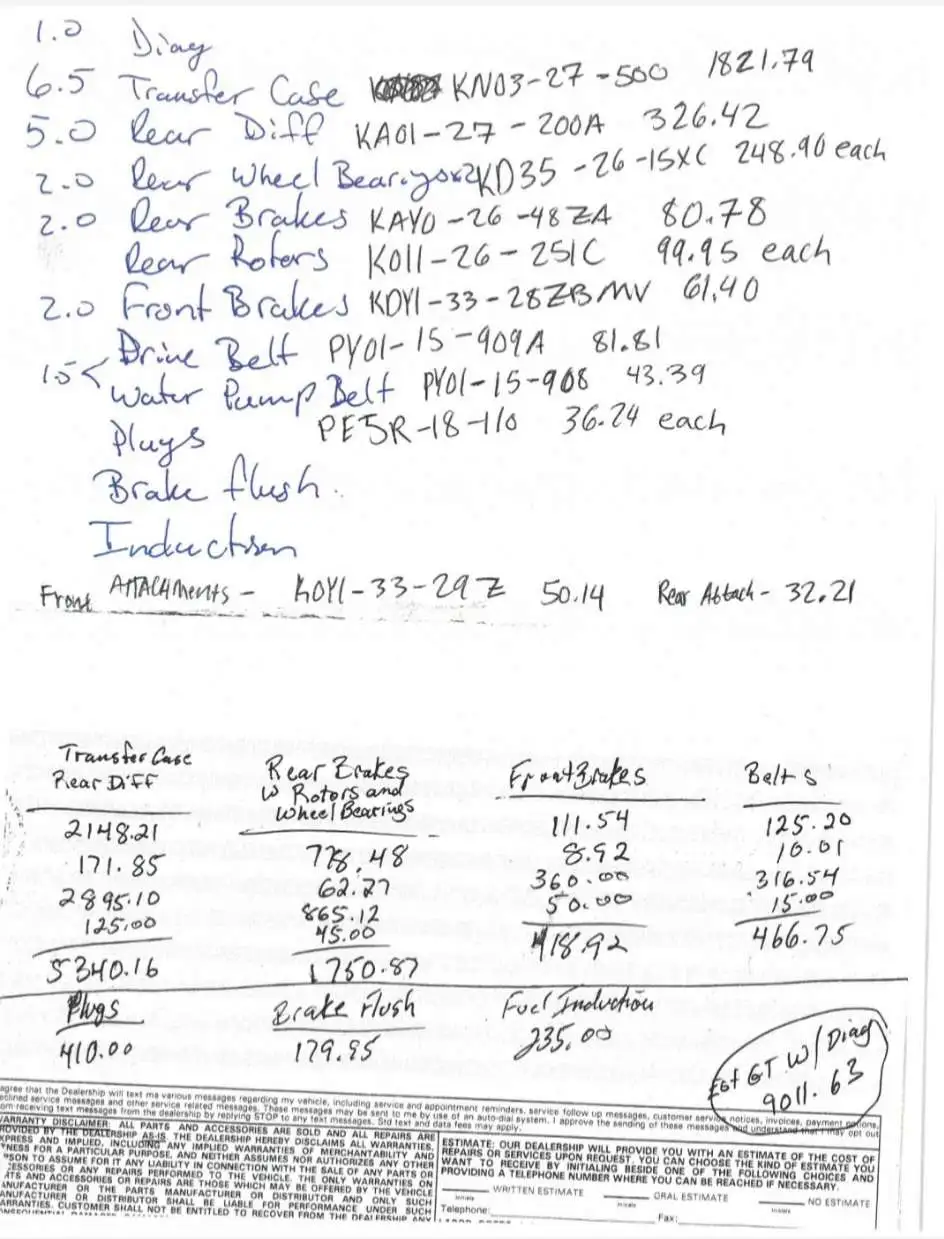 1.0 Diag
6.5 Transfer Case KN03-27-500 1821.79
5.0 Rear Diff KA01-27-200A 326.42
2.0 Rear Wheel Bearings x2 KD35-26-15XC 248.90 each
2.0 Rear Brakes KAY0-26-48ZA 80.78
Rear Rotors K011-26-251C 99.95 each
2.0 Front Brakes KDY1-33-28ZBMV 61.40
Drive Belt PY01-15-909A 81.81
1.5 <
Water Pump Belt PY01-15-908 43.39
Plugs PE5R-18-110 36.24 each
Brake flush
Induction
Front Attachments - K0Y1-33-29Z 50.14 Rear Attach - 32.21
Transfer Case
Rear Diff
2148.21
171.85
2895.10
125.00
5340.16
Rear Brakes
W Rotors and
Wheel Bearings
778.48
62.27
865.12
45.00
1750.87
Front Brakes
111.54
8.92
360.00
50.00
418.92
Belts
125.20
10.01
316.54
15.00
466.75
Plugs
410.00
Brake Flush
179.95
Fuel Induction
235.00
Est GT W/Diag
9011.63
agree that the Dealership will text me various messages regarding my vehicle, including service and appointment reminders, service follow up messages, customer service notices, invoices, payment options,
clined service messages and other service related messages. These messages may be sent to me by use of an auto-dial system. I approve the sending of these messages and understand that I may opt out
om receiving text messages from the dealership by replying STOP to any text messages. Std text and data fees may apply.
WARRANTY DISCLAIMER: ALL PARTS AND ACCESSORIES ARE SOLD AND ALL REPAIRS ARE
ROVIDED BY THE DEALERSHIP AS-IS. THE DEALERSHIP HEREBY DISCLAIMS ALL WARRANTIES,
XPRESS AND IMPLIED, INCLUDING ANY IMPLIED WARRANTIES OF MERCHANTABILITY AND
TNESS FOR A PARTICULAR PURPOSE, AND NEITHER ASSUMES NOR AUTHORIZES ANY OTHER
RSON TO ASSUME FOR IT ANY LIABILITY IN CONNECTION WITH THE SALE OF ANY PARTS OR
CESSORIES OR ANY REPAIRS PERFORMED TO THE VEHICLE. THE ONLY WARRANTIES ON
RTS AND ACCESSORIES OR REPAIRS ARE THOSE WHICH MAY BE OFFERED BY THE VEHICLE
ANUFACTURER OR THE PARTS MANUFACTURER OR DISTRIBUTOR AND ONLY SUCH
ANUFACTURER OR DISTRIBUTOR SHALL BE LIABLE FOR PERFORMANCE UNDER SUCH
ARRANTIES. CUSTOMER SHALL NOT BE ENTITLED TO RECOVER FROM THE DEALERSHIP ANY
ESTIMATE: OUR DEALERSHIP WILL PROVIDE YOU WITH AN ESTIMATE OF THE COST OF
REPAIRS OR SERVICES UPON REQUEST. YOU CAN CHOOSE THE KIND OF ESTIMATE YOU
WANT TO RECEIVE BY INITIALING BESIDE ONE OF THE FOLLOWING CHOICES AND
PROVIDING A TELEPHONE NUMBER WHERE YOU CAN BE REACHED IF NECESSARY.
WRITTEN ESTIMATE ORAL ESTIMATE NO ESTIMATE
Initials Initials Initials
Telephone: Fax: